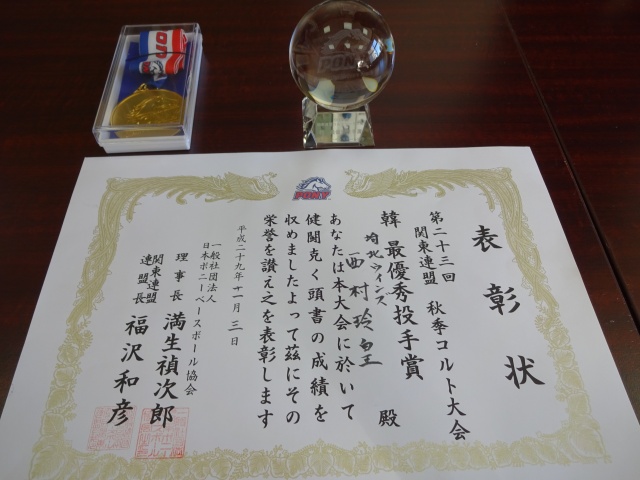 表彰状
第二十三回
関東連盟 秋季コルト大会
最優秀投手賞
埼北ウィンズ
西村 殿
あなたは本大会に於いて
健闘克く頭書の成績を
収めましたよって茲にその
栄誉を讃え之を表彰します
平成二十九年十一月三日
一般社団法人
日本ポニーベースボール協会
理事長 満生禎次郎
関東連盟
連盟長 福沢和彦
PONY
PONY